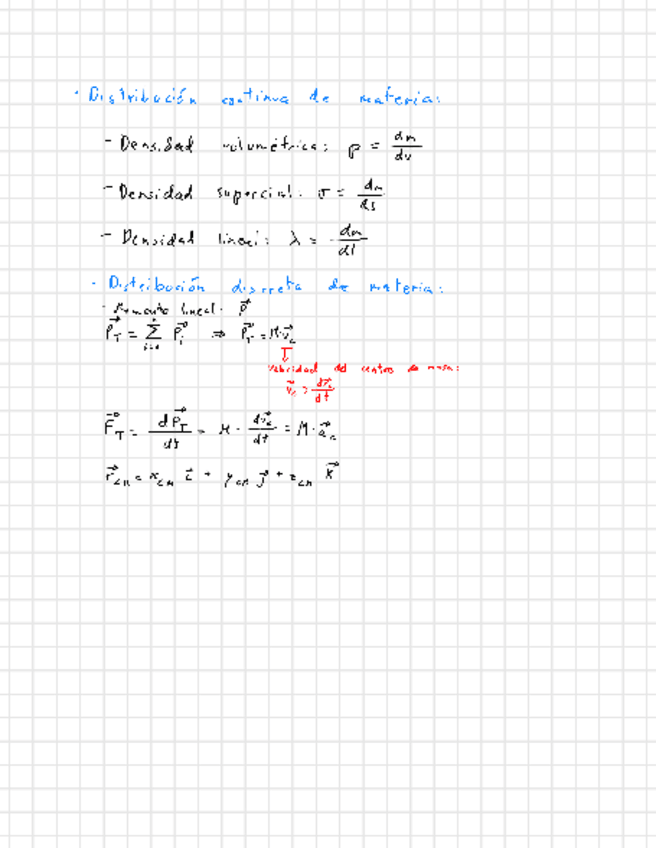 · Distribución continua de materia:
- Densidad volumétrica: ρ = dm/dv
- Densidad supercial: σ = dm/ds
- Densidad lineal: λ = dm/dl
· Distribución discreta de materia:
· Momento lineal: p⃗
P⃗_T = Σ P⃗_i ⇒ P⃗_T = M·v⃗_c
velocidad del centro de masa:
v⃗_c = dr⃗_c/dt
F⃗_T = dP⃗_T/dt = M · dv⃗_c/dt = M · a⃗_c
r⃗_CM = x_CM i⃗ + y_CM j⃗ + z_CM k⃗